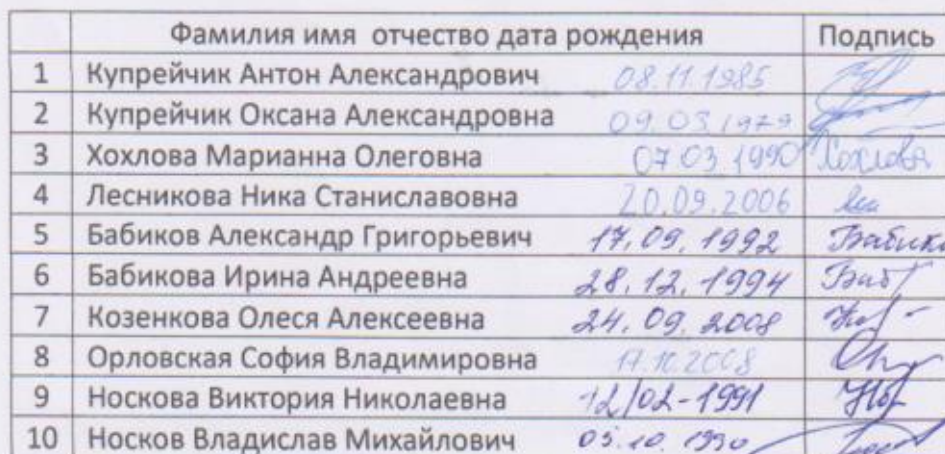 Фамилия имя отчество дата рождения Подпись
1 Купрейчик Антон Александрович 08.11.1985
2 Купрейчик Оксана Александровна 09.03.1979
3 Хохлова Марианна Олеговна 07.03.1990 Хохлова
4 Лесникова Ника Станиславовна 20.09.2006
5 Бабиков Александр Григорьевич 17.09.1992
6 Бабикова Ирина Андреевна 28.12.1994
7 Козенкова Олеся Алексеевна 24.09.2008
8 Орловская София Владимировна 17.10.2008
9 Носкова Виктория Николаевна 12/02-1991
10 Носков Владислав Михайлович 05.10.1990